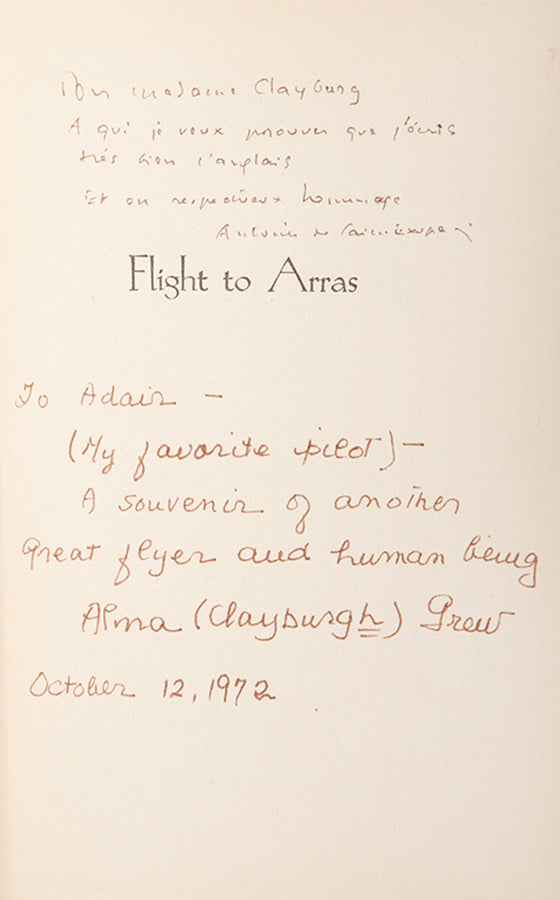 Pour madame Clayburg
A qui je veux prouver que j'écris
très bien l'anglais
Et en respectueux hommage
Antoine de Saint Exupéry
Flight to Arras
To Adair –
(My favorite pilot) –
A souvenir of another
great flyer and human being
Alma (Clayburgh) Grew
October 12, 1972